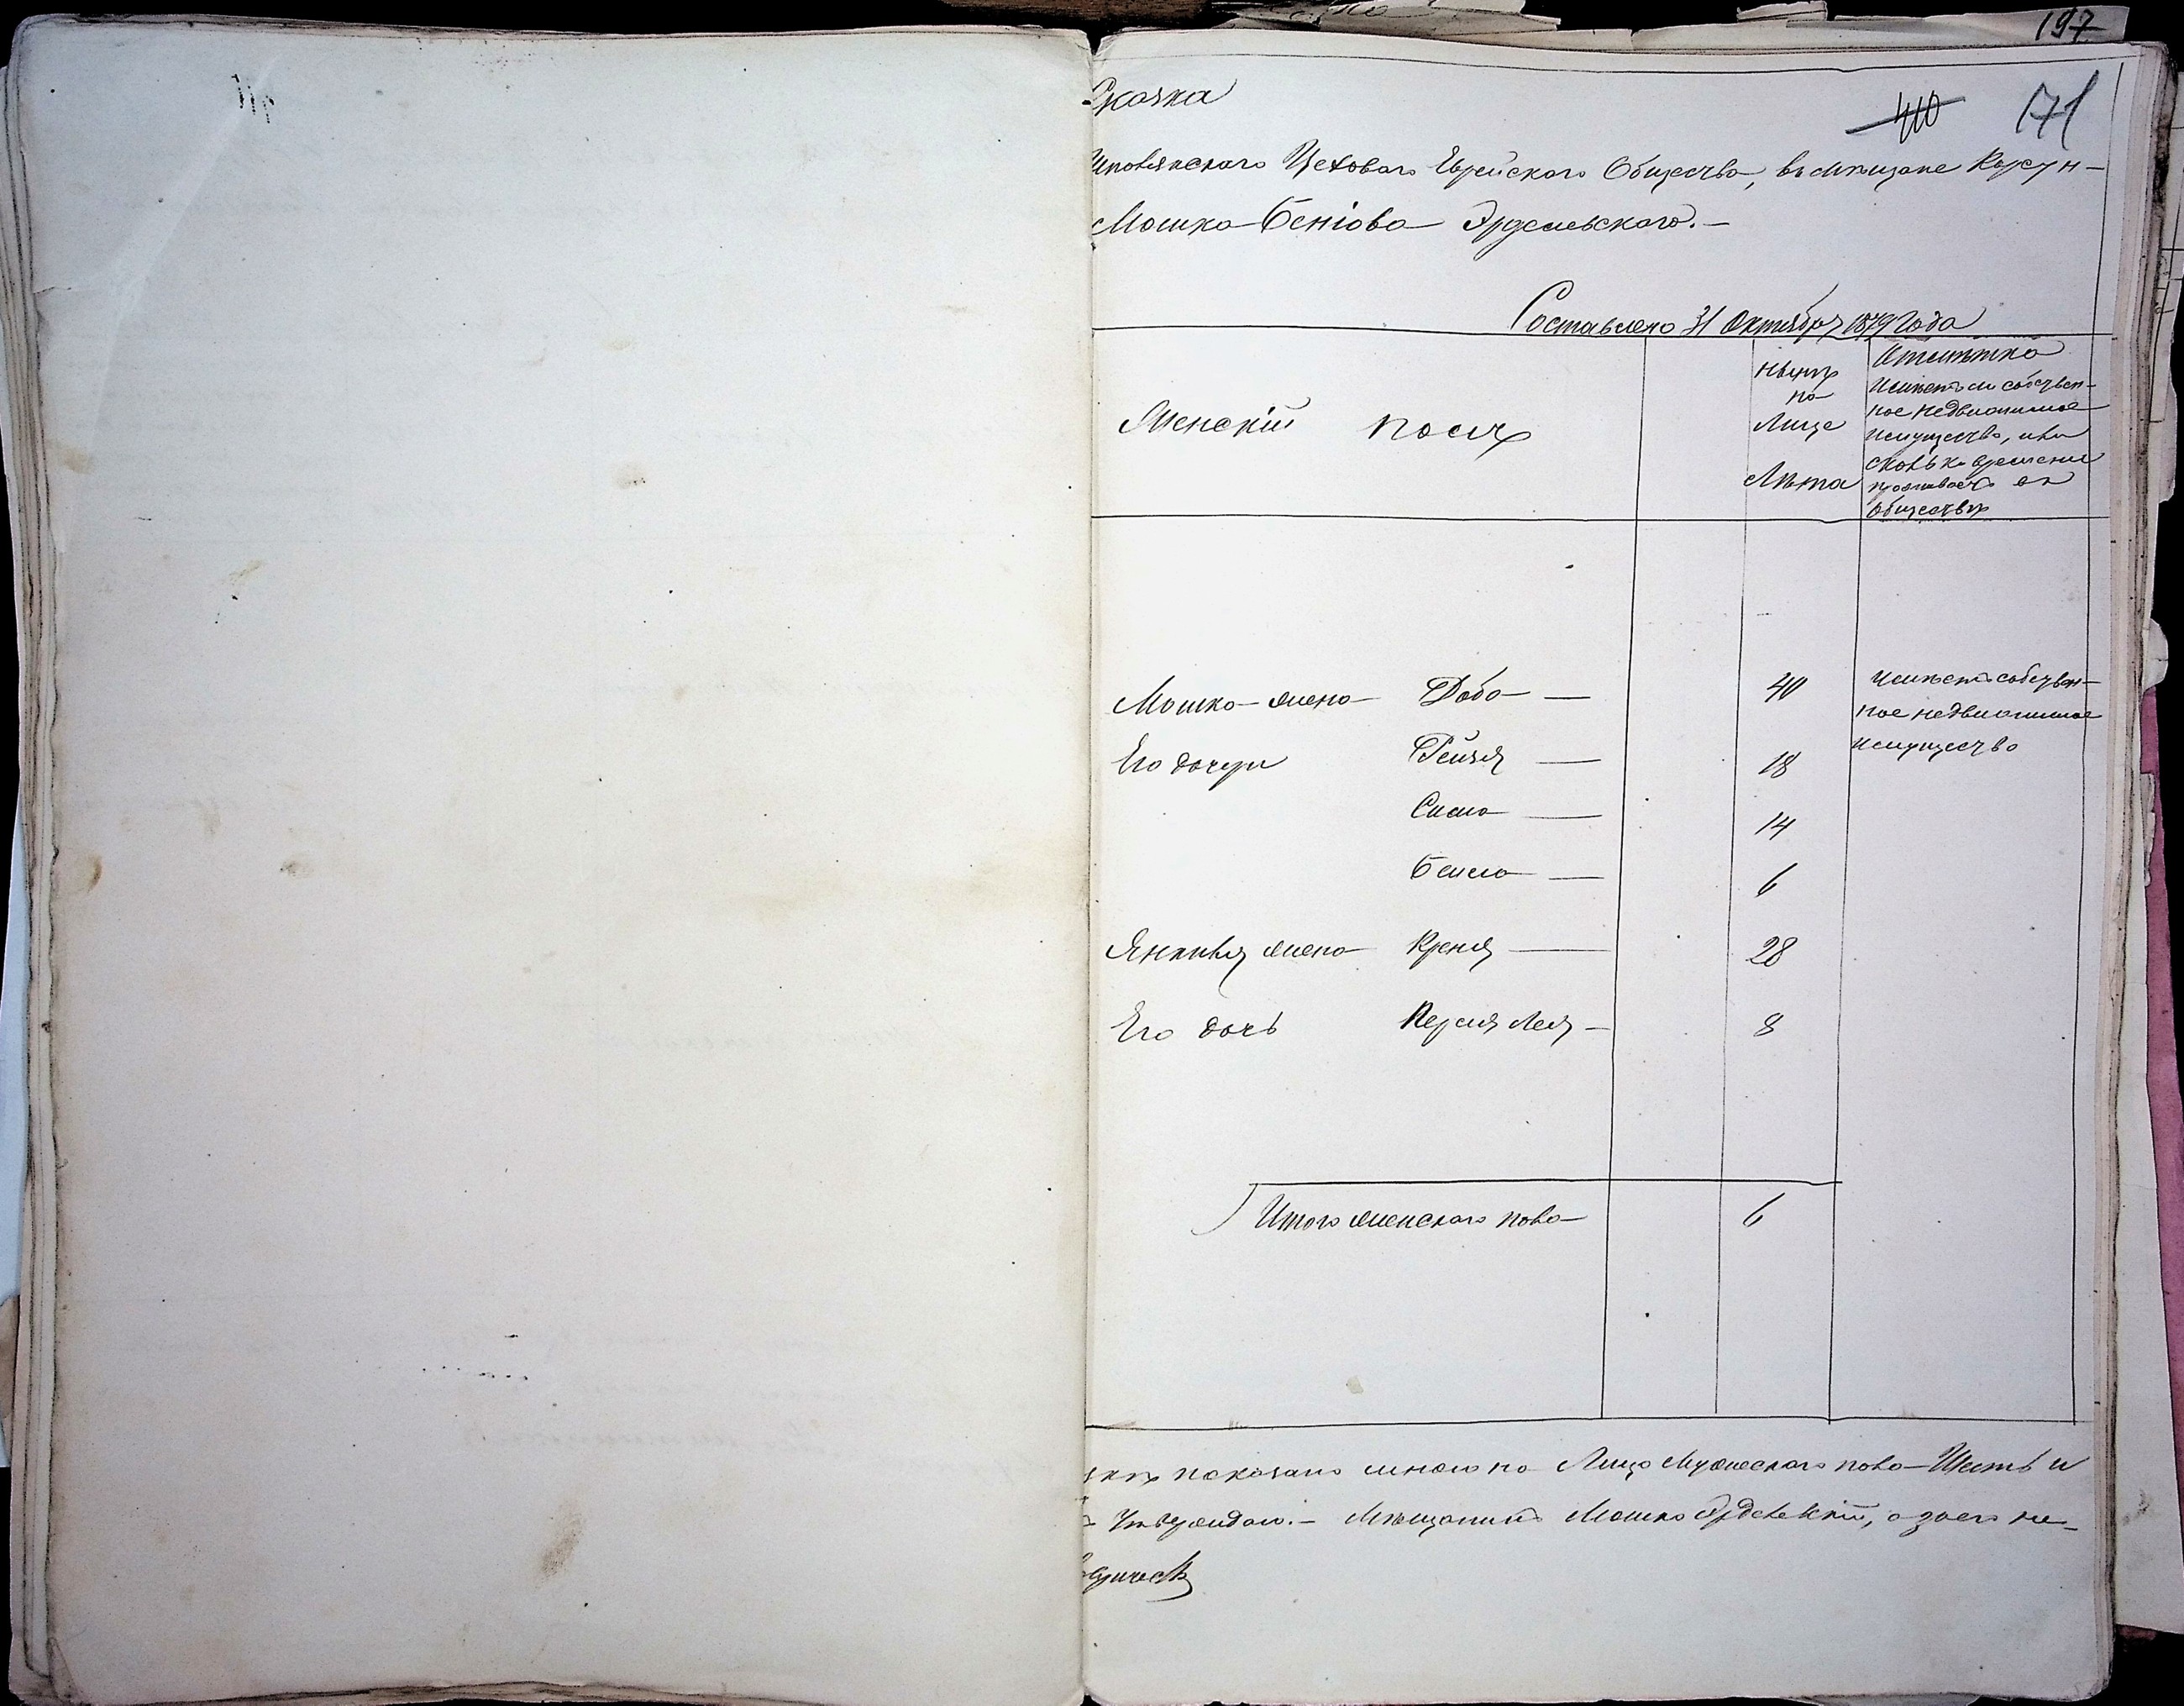 197
Сказка
410 171
иповянскаго Цеховаго Еврейскаго Общества, въ мѣщане Корсун-
Мошка Беніова Эрделевскаго.—
Составлено 31 Октября 1879 Года
Женскій полъ
нынѣ на Лице
Лѣта
Отмѣтка
Имѣетъ ли собствен-
ное недвижимое
имущество, или
сколько времени
проживаетъ въ
обществѣ
Мошка жена Доба — 40 Имѣетъ собствен-
ное недвижимое
имущество
Его дочери Рейзя — 18
Сима — 14
Бейла — 6
Янкеля жена Креня — 28
Его дочь Перля Лея — 8
Итого женскаго пола 6
показано мною на Лицо Мужескаго пола Шесть и
Утверждаю.— Мѣщанинъ Мошко Эрделевскій, а за его не-